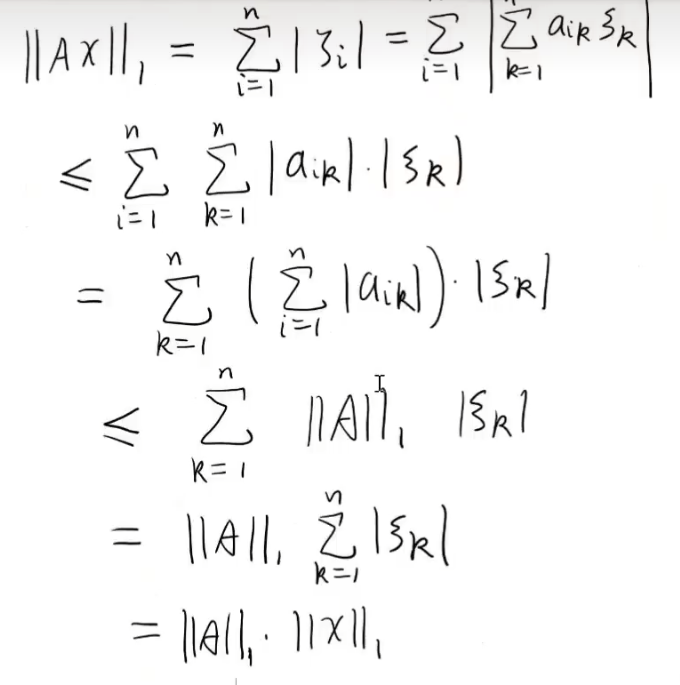 ‖Ax‖₁ = ∑_{i=1}^{n} |ζᵢ| = ∑_{i=1}^{n} |∑_{k=1}^{n} a_{ik} ξ_k|
≤ ∑_{i=1}^{n} ∑_{k=1}^{n} |a_{ik}| · |ξ_k|
= ∑_{k=1}^{n} (∑_{i=1}^{n} |a_{ik}|) · |ξ_k|
≤ ∑_{k=1}^{n} ‖A‖₁ |ξ_k|
= ‖A‖₁ ∑_{k=1}^{n} |ξ_k|
= ‖A‖₁ · ‖x‖₁